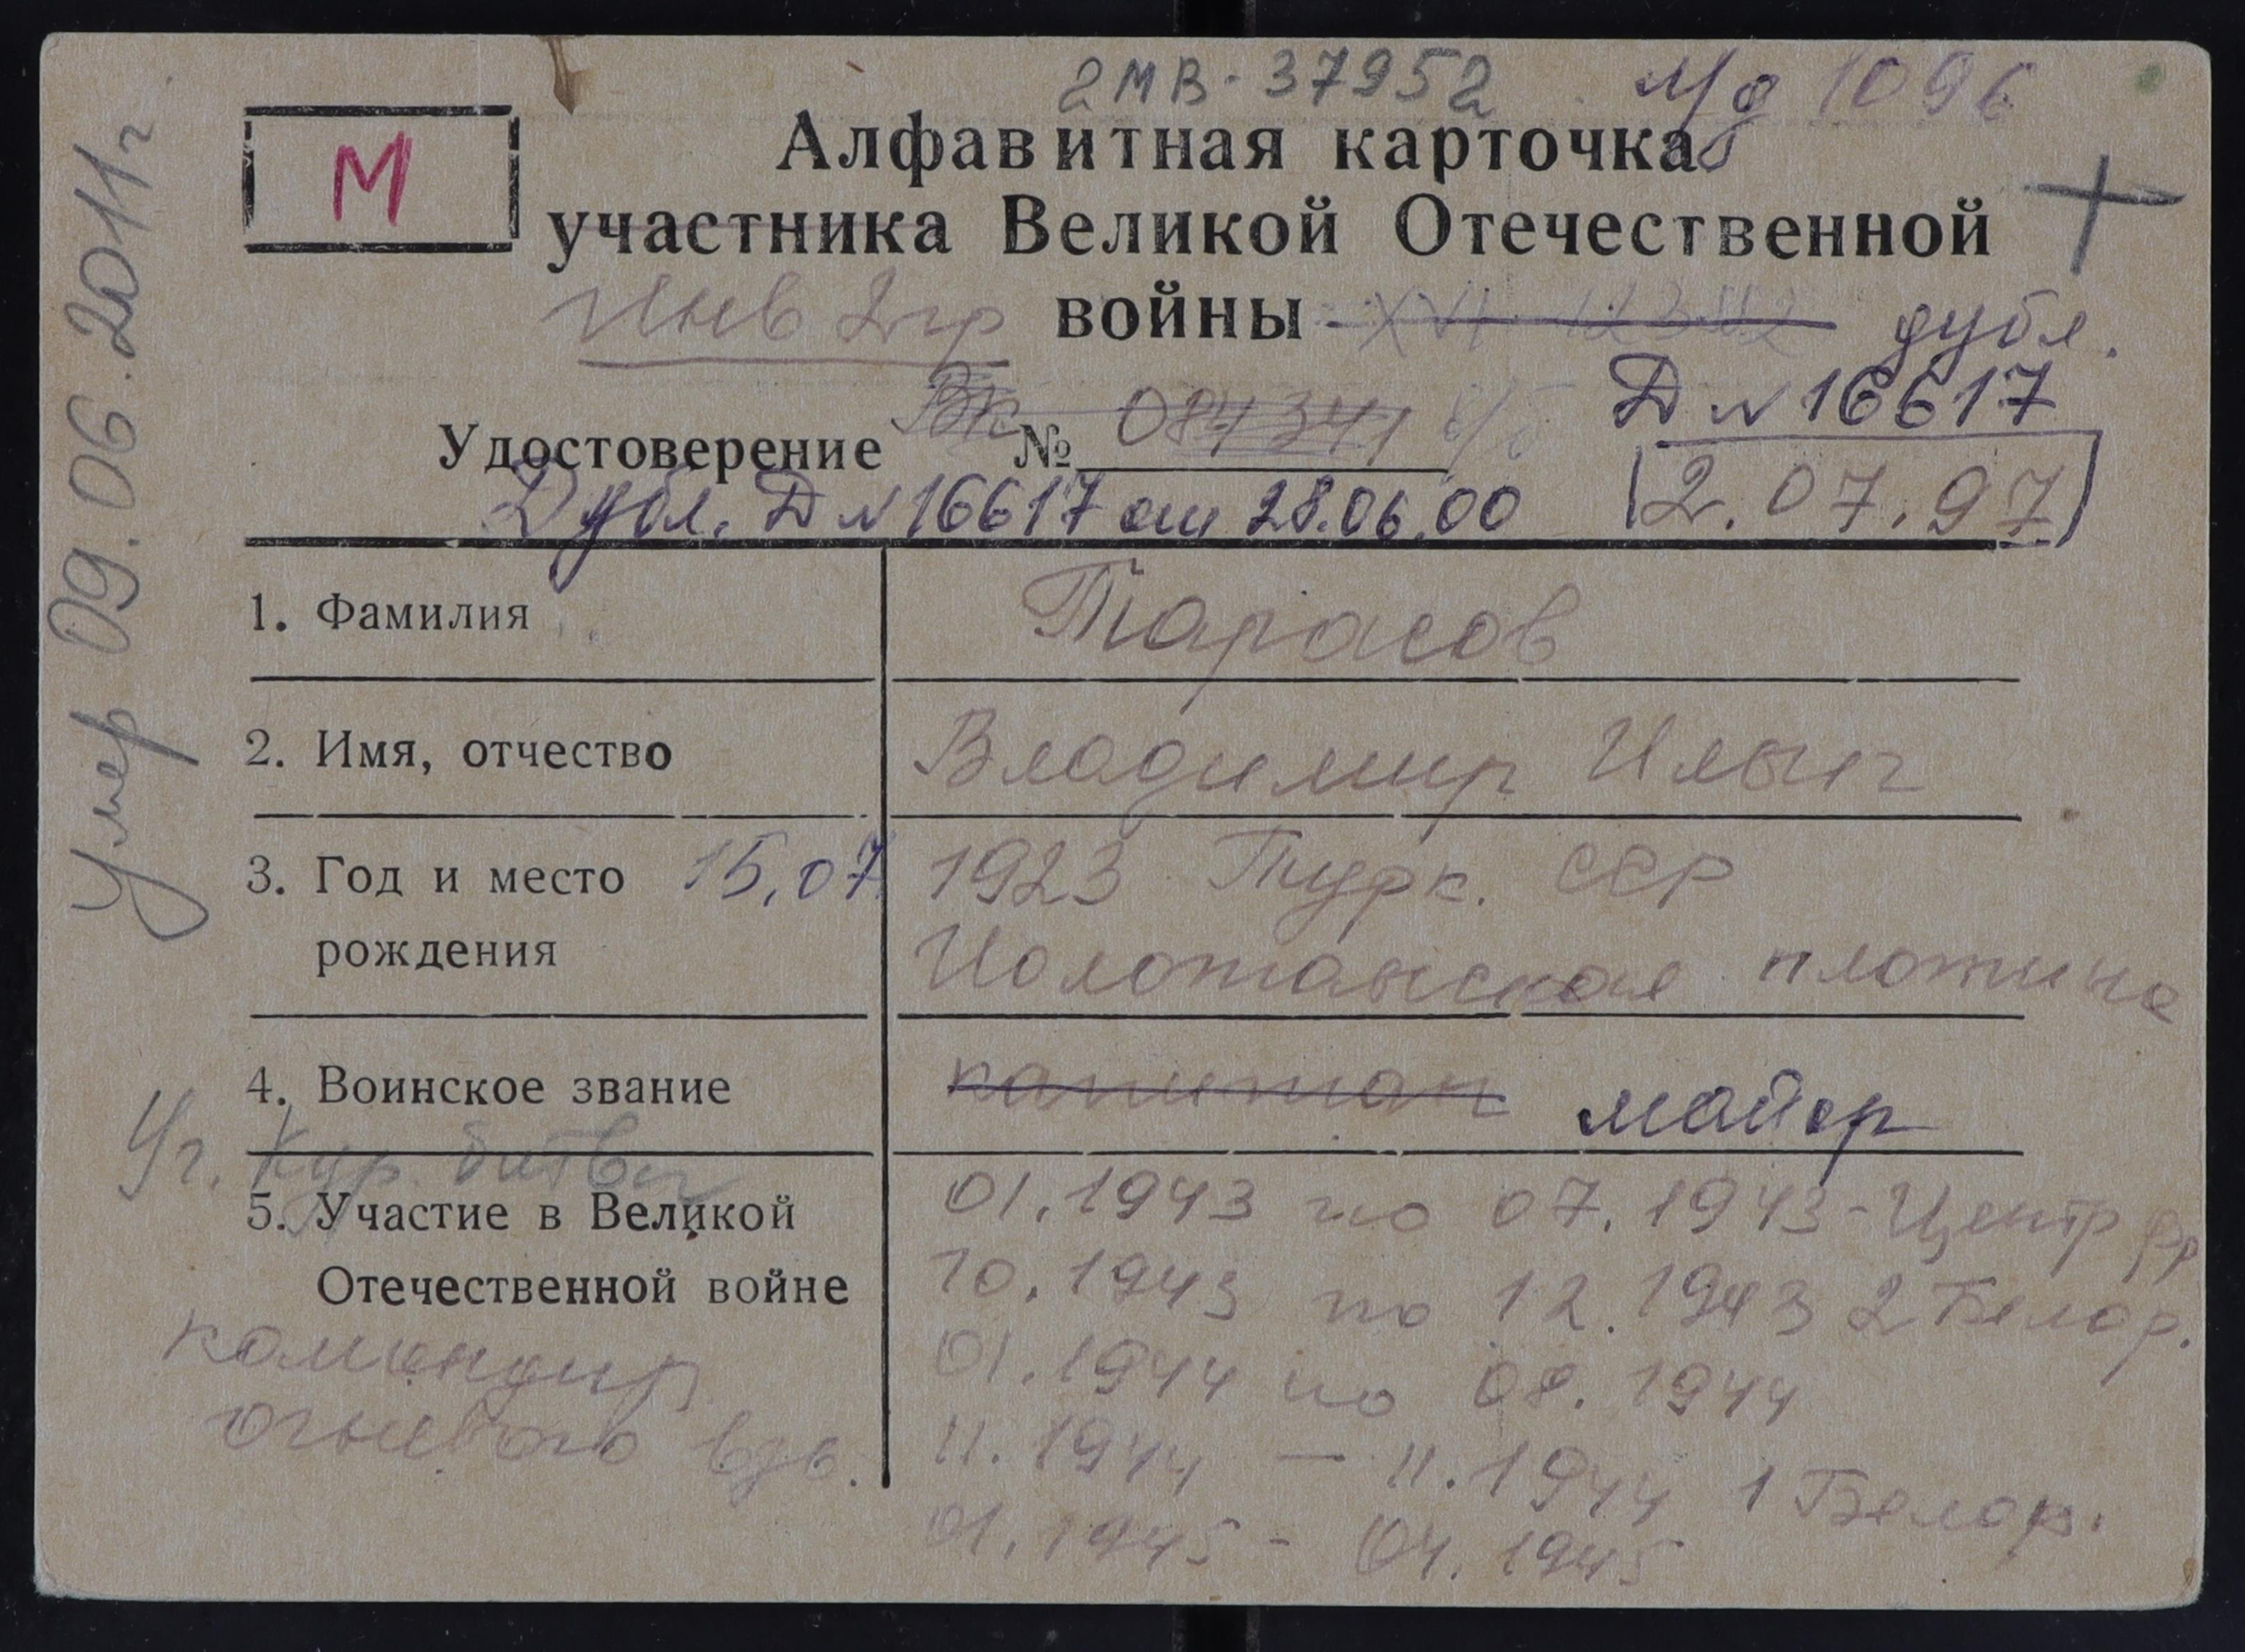 2МВ-37952 Мд 1096
М
Алфавитная карточка
участника Великой Отечественной
Инв 2 гр войны дубл.
Д № 16617
Удостоверение Вк № 084341
Дубл. Д № 16617 от 28.06.00 12.07.97
1. Фамилия Тарасов
2. Имя, отчество Владимир Ильич
3. Год и место 15.07 1923 Турк. ССР
рождения Иолотанская плотина
4. Воинское звание капитан майор
Уч. Кур. битвы
5. Участие в Великой 01.1943 по 07.1943 - Центр фр
Отечественной войне 10.1943 по 12.1943 2 Белор.
командир 01.1944 по 08.1944
огневого взв. 11.1944 — 11.1944 1 Белор.
01.1945 - 04.1945
Умер 09.06.2011г